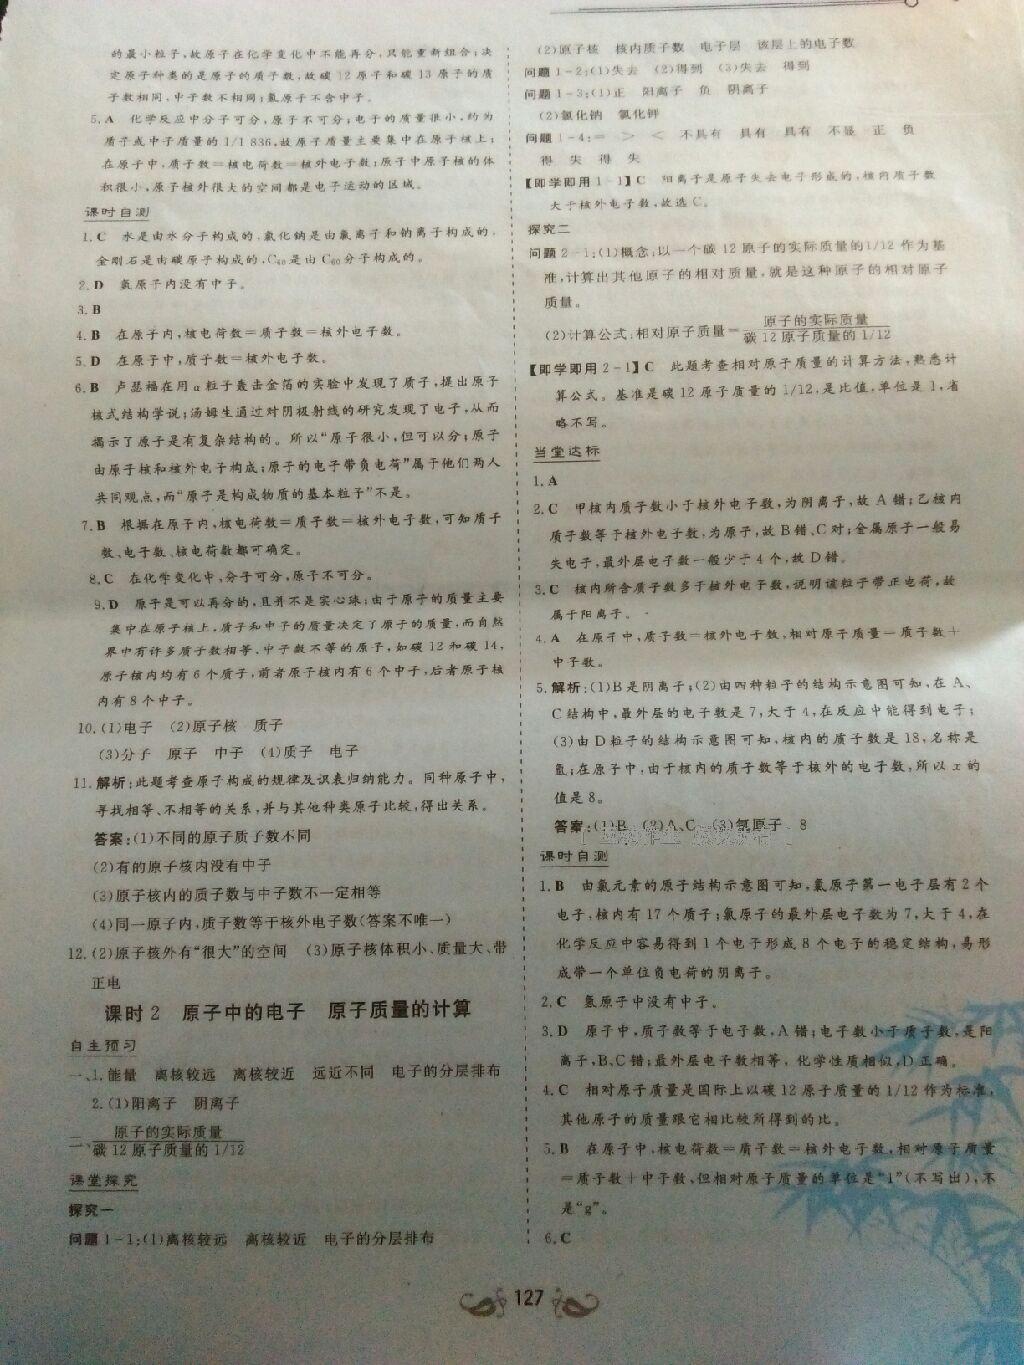 的最小粒子,故原子在化学变化中不能再分,只能重新组合;决
定原子种类的是原子的质子数,故碳12原子和碳13原子的质
子数相同,中子数不相同;氢原子不含中子。
5.A 化学反应中分子可分,原子不可分;电子的质量很小,约为
质子或中子质量的1/1 836,故原子质量主要集中在原子核上;
在原子中,质子数=核电荷数=核外电子数;原子中原子核的体
积很小,原子核外很大的空间都是电子运动的区域。
课时自测
1.C 水是由水分子构成的,氯化钠是由氯离子和钠离子构成的,
金刚石是由碳原子构成的,C60是由C60分子构成的。
2.D 氢原子内没有中子。
3.B
4.B 在原子内,核电荷数=质子数=核外电子数。
5.D 在原子中,质子数=核外电子数。
6.B 卢瑟福在用α粒子轰击金箔的实验中发现了质子,提出原子
核式结构学说;汤姆生通过对阴极射线的研究发现了电子,从而
揭示了原子是有复杂结构的。所以“原子很小,但可以分;原子
由原子核和核外电子构成;原子的电子带负电荷”属于他们两人
共同观点,而“原子是构成物质的基本粒子”不是。
7.B 根据在原子内,核电荷数=质子数=核外电子数,可知质子
数、电子数、核电荷数都可确定。
8.C 在化学变化中,分子可分,原子不可分。
9.D 原子是可以再分的,且并不是实心球;由于原子的质量主要
集中在原子核上,质子和中子的质量决定了原子的质量,而自然
界中有许多质子数相等、中子数不等的原子,如碳12和碳14,
原子核内均有6个质子,前者原子核内有6个中子,后者原子核
内有8个中子。
10.(1)电子 (2)原子核 质子
(3)分子 原子 中子 (4)质子 电子
11.解析:此题考查原子构成的规律及识表归纳能力。同种原子中,
寻找相等、不相等的关系,并与其他种类原子比较,得出关系。
答案:(1)不同的原子质子数不同
(2)有的原子核内没有中子
(3)原子核内的质子数与中子数不一定相等
(4)同一原子内,质子数等于核外电子数(答案不唯一)
12.(2)原子核外有“很大”的空间 (3)原子核体积小、质量大、带
正电
课时2 原子中的电子 原子质量的计算
自主预习
一、1.能量 离核较远 离核较近 远近不同 电子的分层排布
2.(1)阳离子 阴离子
二、原子的实际质量
碳12原子质量的1/12
课堂探究
探究一
问题1-1:(1)离核较远 离核较近 电子的分层排布
(2)原子核 核内质子数 电子层 该层上的电子数
问题1-2:(1)失去 (2)得到 (3)失去 得到
问题1-3:(1)正 阳离子 负 阴离子
(2)氯化钠 氯化钾
问题1-4:= > < 不具有 具有 具有 不显 正 负
得 失 得 失
【即学即用1-1】C 阳离子是原子失去电子形成的,核内质子数
大于核外电子数,故选C。
探究二
问题2-1:(1)概念:以一个碳12原子的实际质量的1/12作为基
准,计算出其他原子的相对质量,就是这种原子的相对原子
质量。
(2)计算公式:相对原子质量=原子的实际质量
碳12原子质量的1/12
【即学即用2-1】C 此题考查相对原子质量的计算方法,熟悉计
算公式。基准是碳12原子质量的1/12,是比值,单位是1,省
略不写。
当堂达标
1.A
2.C 甲核内质子数小于核外电子数,为阴离子,故A错;乙核内
质子数等于核外电子数,为原子,故B错、C对;金属原子一般易
失电子,最外层电子数一般少于4个,故D错。
3.C 核内所含质子数多于核外电子数,说明该粒子带正电荷,故
属于阳离子。
4.A 在原子中,质子数=核外电子数,相对原子质量=质子数+
中子数。
5.解析:(1)B是阴离子;(2)由四种粒子的结构示意图可知,在A、
C结构中,最外层的电子数是7,大于4,在反应中能得到电子;
(3)由D粒子的结构示意图可知,核内的质子数是18,名称是
氩;在原子中,由于核内的质子数等于核外的电子数,所以x的
值是8。
答案:(1)B (2)A、C (3)氩原子 8
课时自测
1.B 由氯元素的原子结构示意图可知,氯原子第一电子层有2个
电子,核内有17个质子;氯原子的最外层电子数为7,大于4,在
化学反应中容易得到1个电子形成8个电子的稳定结构,易形
成带一个单位负电荷的阴离子。
2.C 氢原子中没有中子。
3.D 原子中,质子数等于电子数,A错;电子数小于质子数,是阳
离子,B、C错;最外层电子数相等,化学性质相似,D正确。
4.C 相对原子质量是国际上以碳12原子质量的1/12作为标准,
其他原子的质量跟它相比较所得到的比。
5.B 在原子中,核电荷数=质子数=核外电子数,相对原子质量
=质子数+中子数,但相对原子质量的单位是“1”(不写出),不
是“g”。
6.C
127